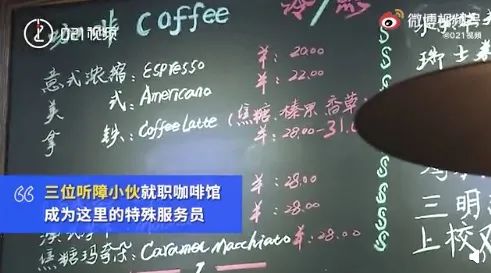 021视频
微博视频号
@021视频
咖啡 Coffee
冷/热
意式浓缩：Espresso ¥：20.00
美式：Americano ¥：22.00
拿铁：Coffee Latte (焦糖.榛果.香草)
¥：28.00-31.0
¥：28.00
¥：28.00
焦糖玛奇朵：Caramel Macchiato ¥：28.00
瑞士
三明
上校
三位听障小伙就职咖啡馆
成为这里的特殊服务员